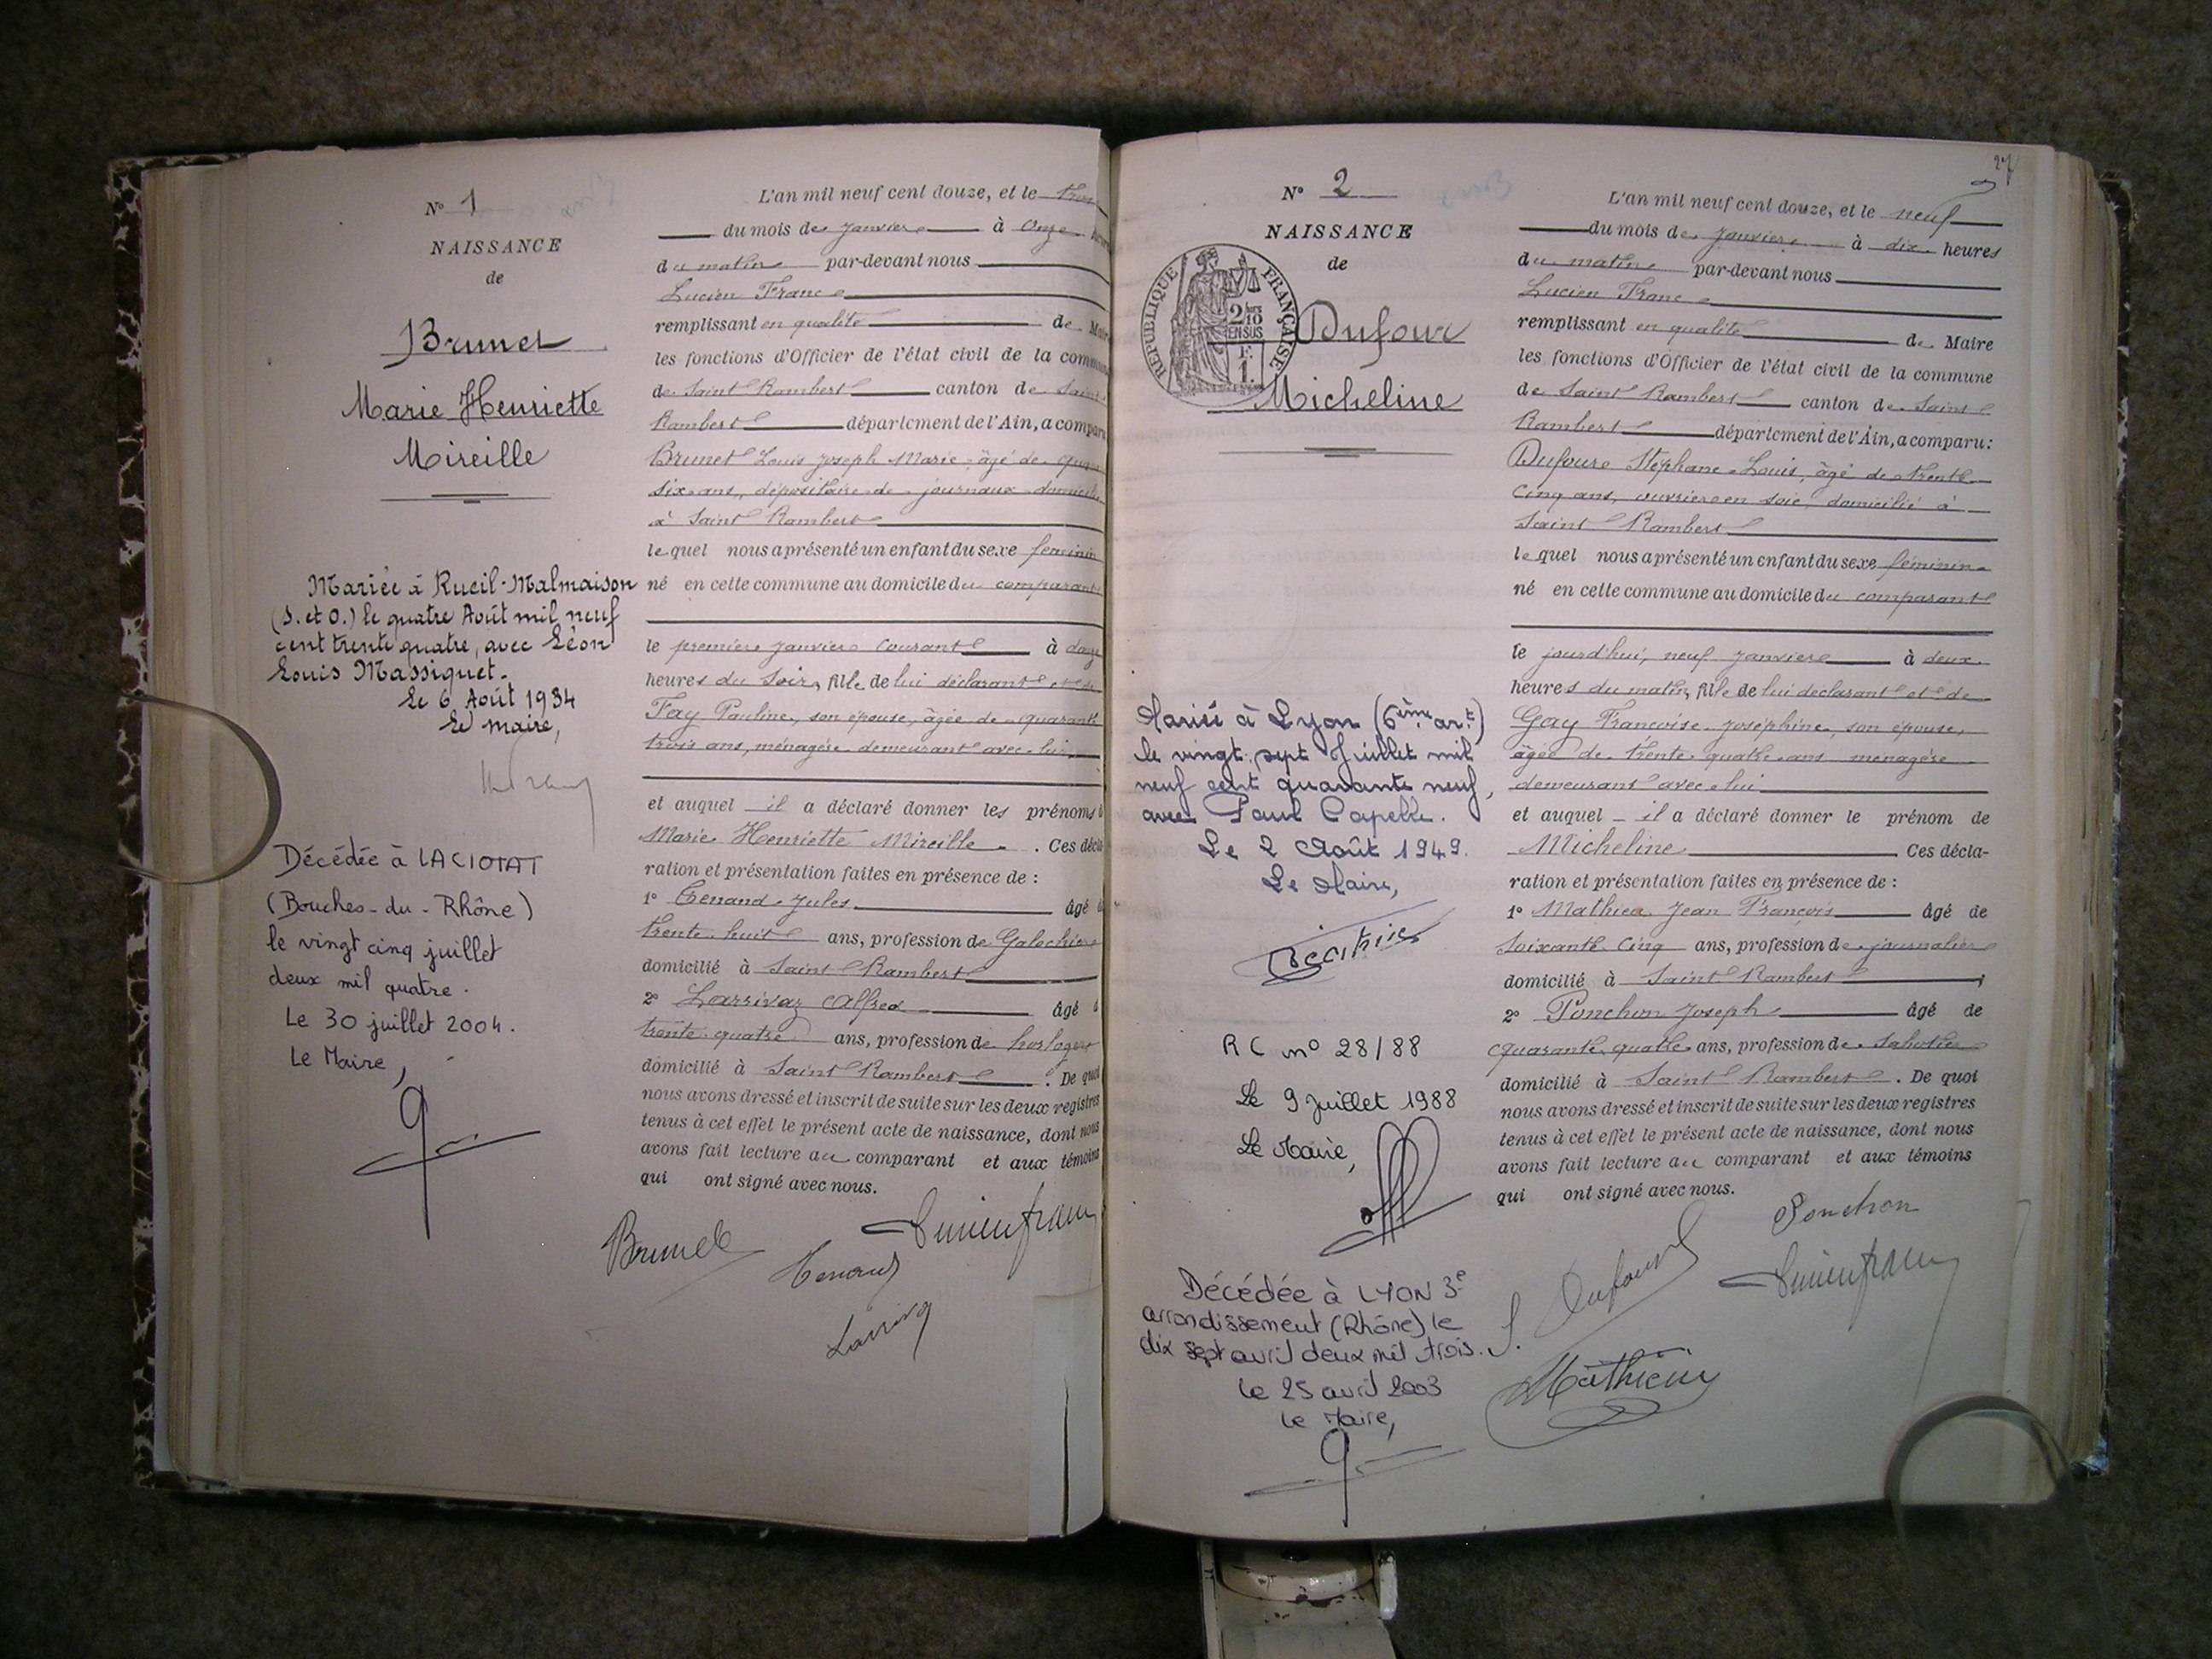 N° 1
NAISSANCE
de
Brunet
Marie Henriette
Mireille
Mariée à Rueil-Malmaison
(S. et O.) le quatre Août mil neuf
cent trente quatre, avec Léon
Louis Massiquet.
Le 6 Août 1934
Le maire,
Décédée à LA CIOTAT
(Bouches-du-Rhône)
le vingt cinq juillet
deux mil quatre.
Le 30 juillet 2004.
Le Maire,
L'an mil neuf cent douze, et le trois
du mois de janvier à onze heures
du matin par-devant nous
Lucien Franc
remplissant en qualité de Maire
les fonctions d'Officier de l'état civil de la commune
de Saint Rambert canton de Saint
Rambert département de l'Ain, a comparu
Brunet Louis Joseph Marie âgé de
six ans, dépositaire de journaux domicilié
à Saint Rambert
lequel nous a présenté un enfant du sexe féminin
né en cette commune au domicile du comparant
le premier janvier courant à
heures du soir, fille de lui déclarant et de
Fay Pauline, son épouse, âgée de quarante
trois ans, ménagère demeurant avec lui,
et auquel il a déclaré donner les prénoms
Marie Henriette Mireille. Ces décla
ration et présentation faites en présence de :
1° Tenand Jules âgé
trente huit ans, profession de Galochier
domicilié à Saint Rambert
2° Larrivaz Alfred âgé
trente quatre ans, profession de horloger
domicilié à Saint Rambert. De quoi
nous avons dressé et inscrit de suite sur les deux registres
tenus à cet effet le présent acte de naissance, dont nous
avons fait lecture au comparant et aux témoins
qui ont signé avec nous.
Brunet
Tenand
Lucien Franc
Larrivaz
27
N° 2
NAISSANCE
de
RÉPUBLIQUE FRANÇAISE
2/10
EN SUS
F.
1.
Dufour
Micheline
Mariée à Lyon (6ème art)
le vingt sept Juillet mil
neuf cent quarante neuf,
avec Paul Capelle.
Le 2 Août 1949.
Le Maire,
RC n° 28/88
Le 9 Juillet 1988
Le Maire,
Décédée à LYON 3e
arrondissement (Rhône) le
dix sept avril deux mil trois.
Le 25 avril 2003
Le Maire,
L'an mil neuf cent douze, et le neuf
du mois de janvier à dix heures
du matin par-devant nous
Lucien Franc
remplissant en qualité de Maire
les fonctions d'Officier de l'état civil de la commune
de Saint Rambert canton de Saint
Rambert département de l'Ain, a comparu :
Dufour Stéphane Louis, âgé de trente
cinq ans, ouvrier en soie, domicilié à
Saint Rambert
lequel nous a présenté un enfant du sexe féminin
né en cette commune au domicile du comparant
le jourd'hui, neuf janvier à deux
heures du matin, fille de lui déclarant et de
Gay Françoise Joséphine, son épouse,
âgée de trente quatre ans ménagère
demeurant avec lui
et auquel il a déclaré donner le prénom de
Micheline Ces décla-
ration et présentation faites en présence de :
1° Mathieu Jean François âgé de
soixante cinq ans, profession de journalier
domicilié à Saint Rambert ;
2° Ponchon Joseph âgé de
quarante quatre ans, profession de sabotier
domicilié à Saint Rambert. De quoi
nous avons dressé et inscrit de suite sur les deux registres
tenus à cet effet le présent acte de naissance, dont nous
avons fait lecture au comparant et aux témoins
qui ont signé avec nous.
Ponchon
S. Dufour
Lucien Franc
Mathieu